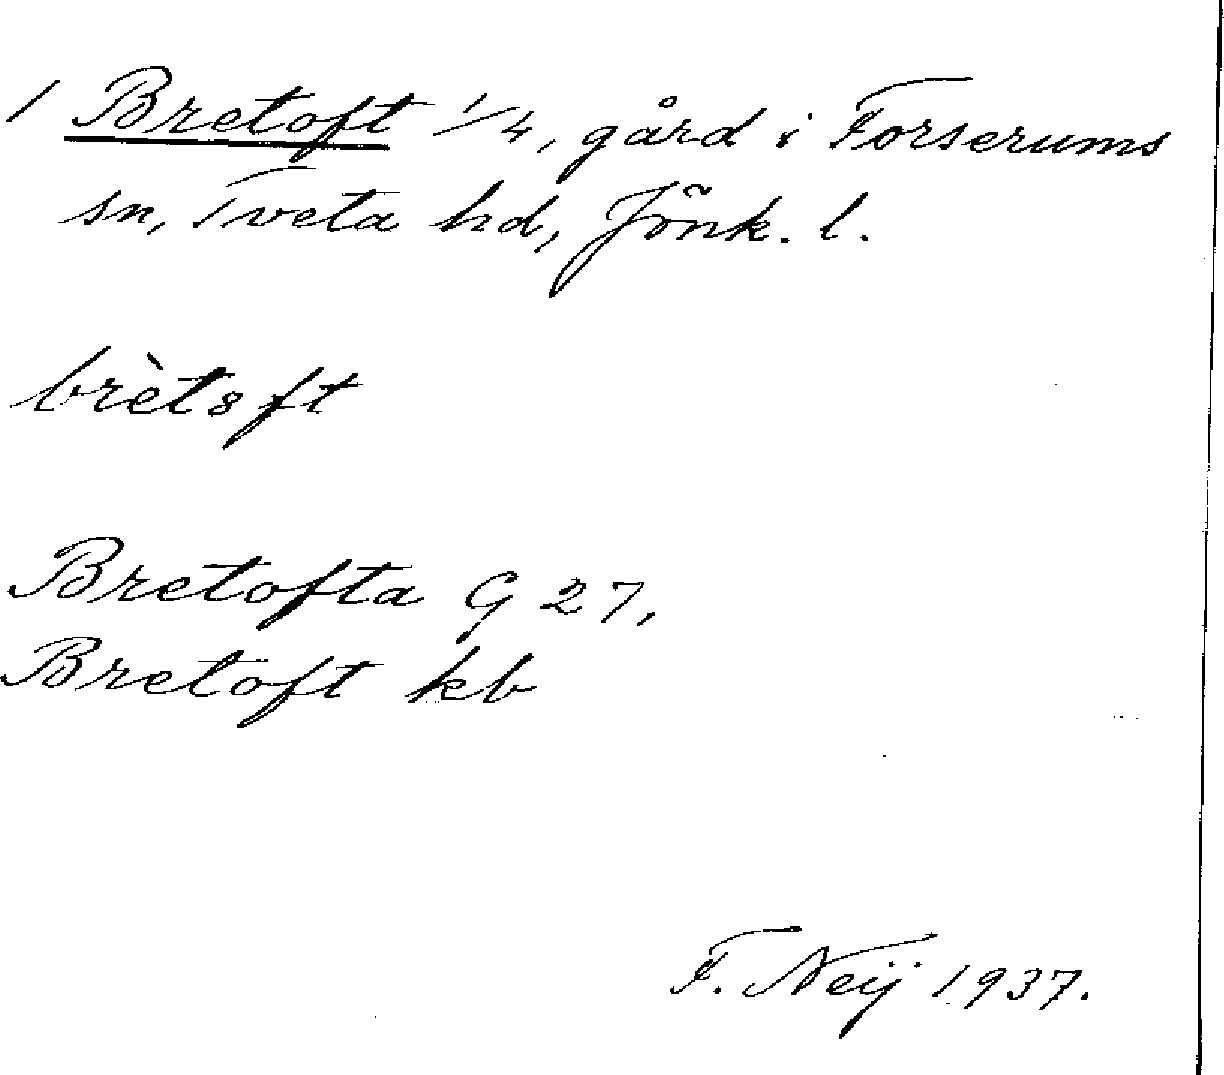 1 Bretoft 1/4, gård i Forserums
sn, Tveta hd, Jönk. l.
brètsft
Bretofta G 27,
Bretoft kb
F. Neij 1937.